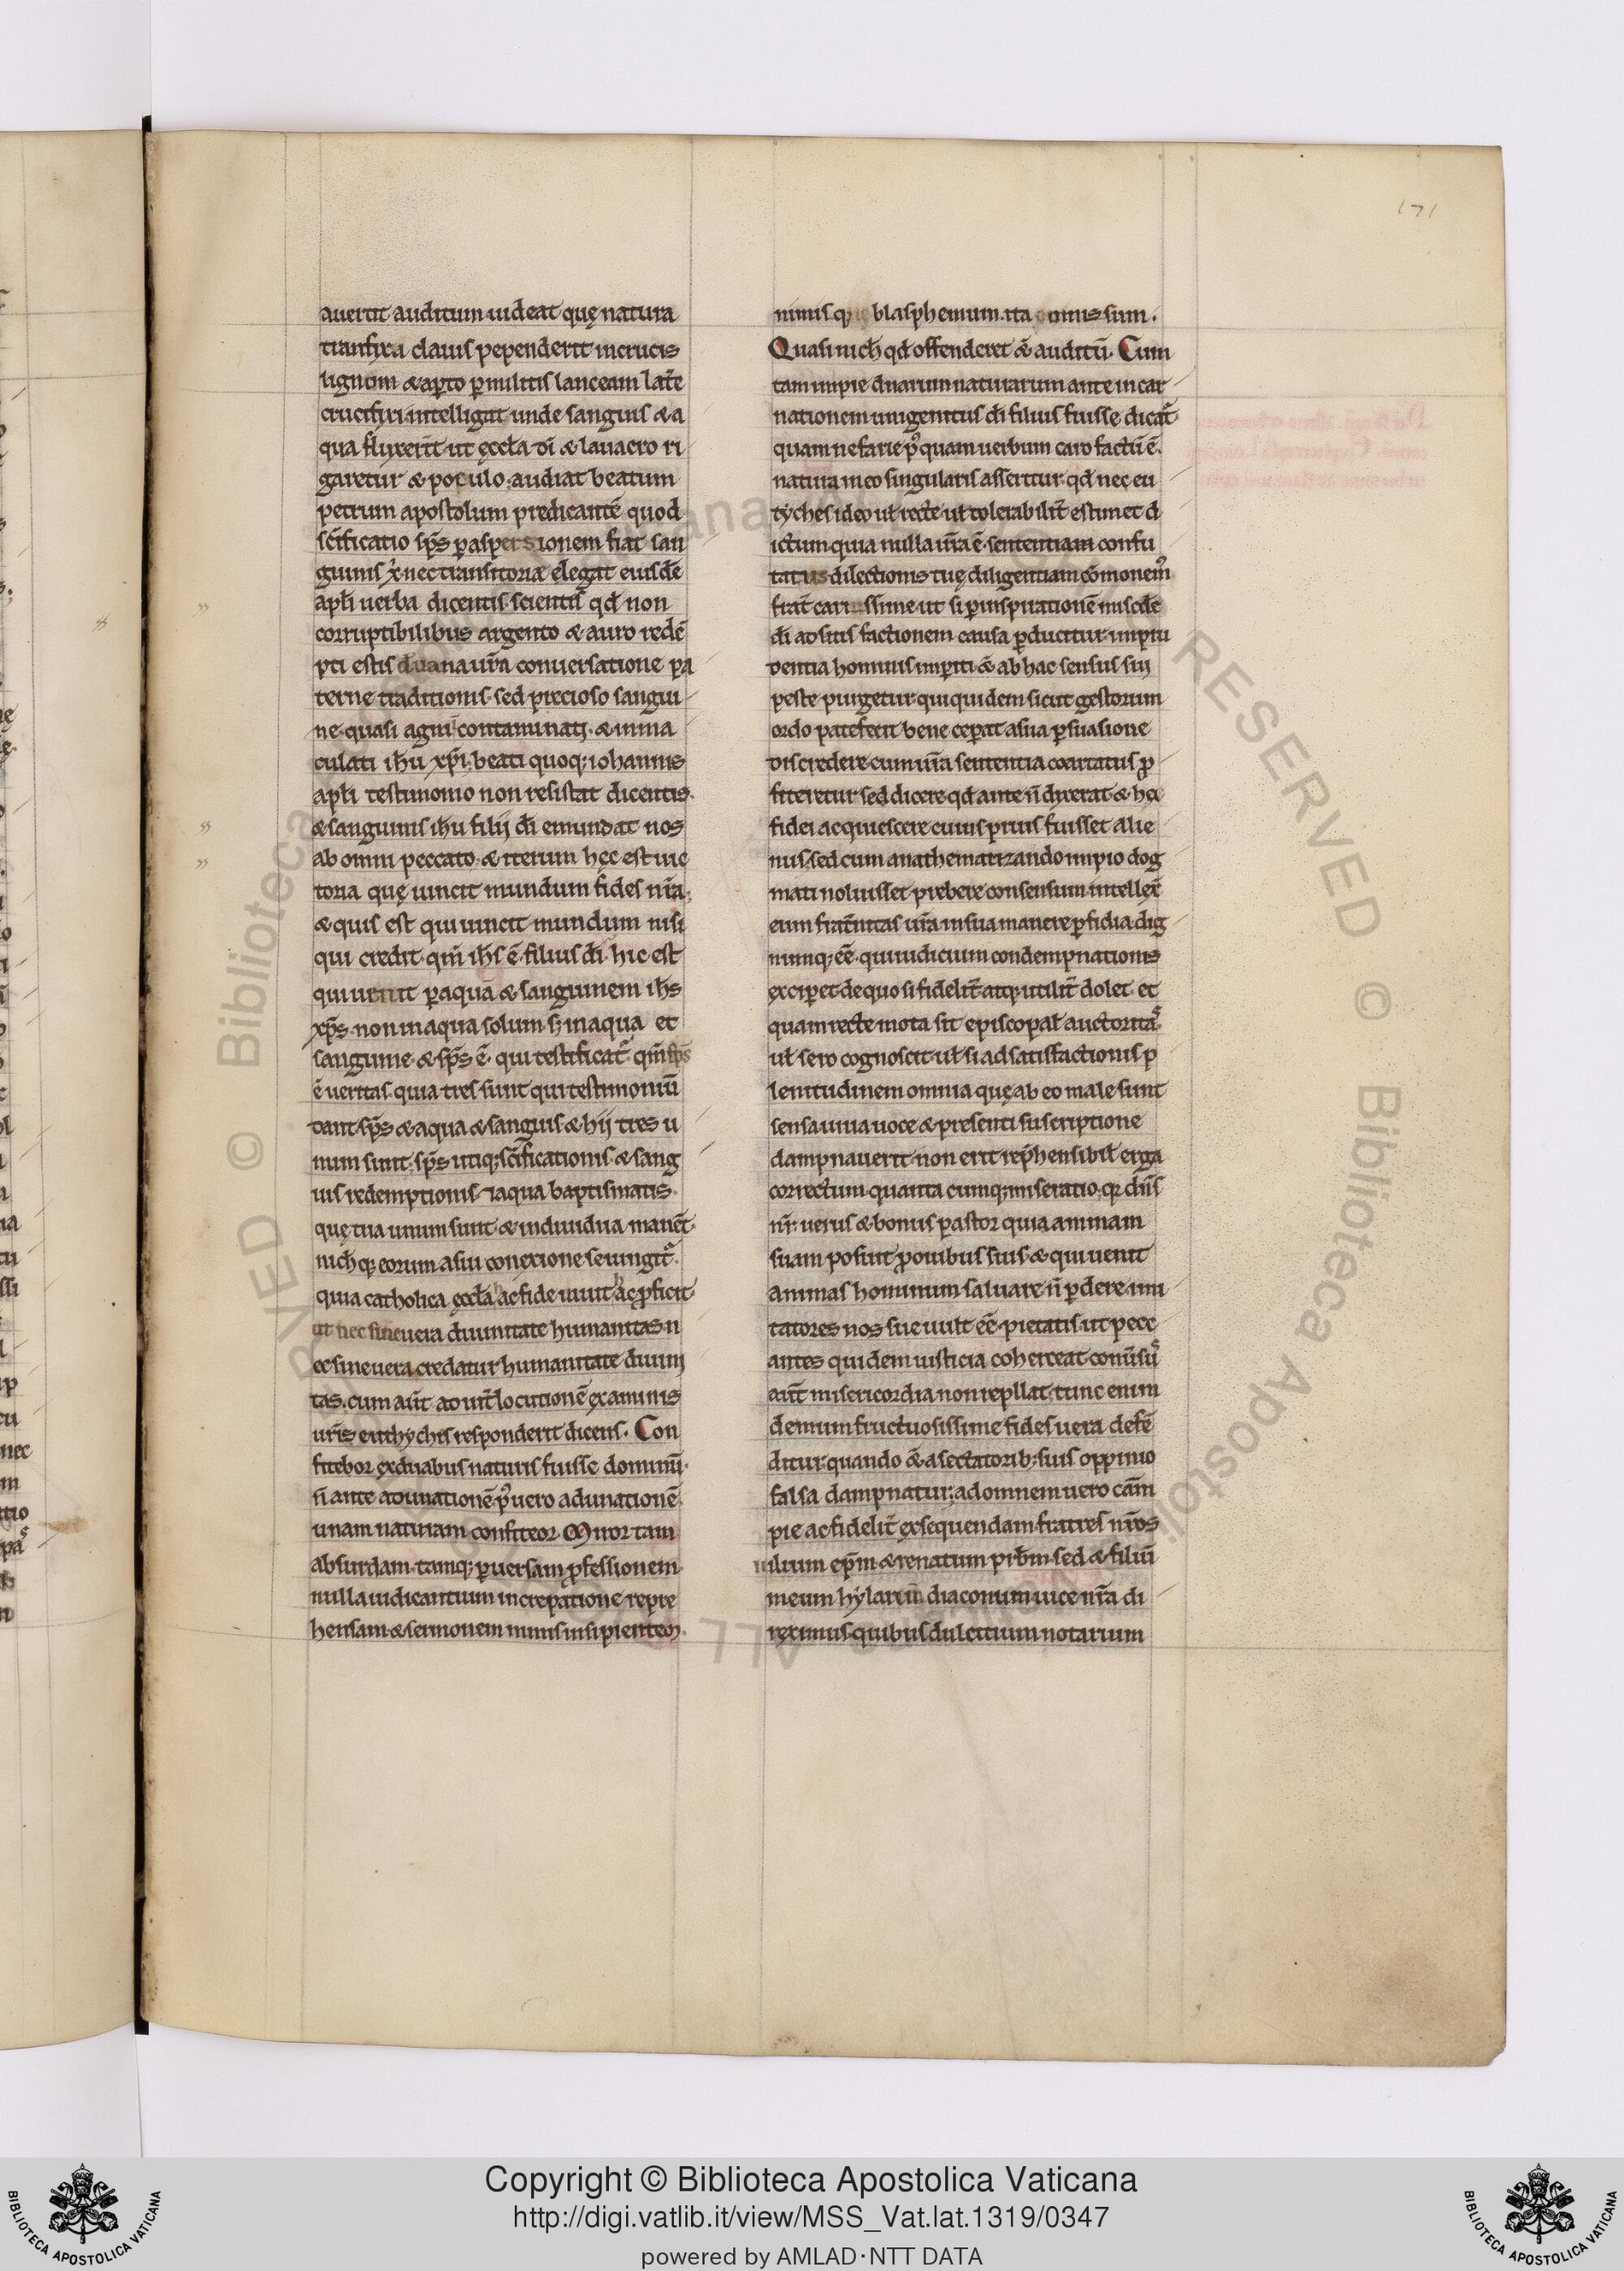 171
avertit auditum uideat quę natura
tranfixa clauis pependerit in crucis
lignum & aꝑto ꝑ militis lanceam lat̄e
crucifixi intelligat unde sanguis & a
qua fluxerit ut ęccla dī & lauacro ri
garetur & poculo. audiat beatum
petrum apostolum predicantē quod
scīficatio sp̄s ꝑ aspersionem fiat san
guinis x̄. nec transitoriæ elegat eiusdē
apl̄i uerba dicentis. scientes qd̄ non
corruptibilibus argento & auro redē
pti estis de uana ur̄a conuersatione pa
terne traditionis. sed precioso sangui
ne. quasi agni contaminati. & inma
culati ih̄u xp̄i. beati quoq; iohannis
apl̄i testimonio non resistat dicentis.
& sanguinis ih̄u filij dī emundat nos
ab omni peccato. & iterum hęc est uic
toria quę uincit mundum fides nr̄a.
& quis est qui uincit mundum nisi
qui credit. qm̄ ih̄s ē. filius dī. hic est
qui uenit ꝑ aquā & sanguinem ih̄s
xp̄s. non in aqua solum s; in aqua et
sanguine. & sp̄s ē. qui testificat᷑. qm̄ sp̄s
ē ueritas. quia tres sunt qui testimoniū
dant. sp̄s & aqua & sanguis. & hij tres u
num sunt. sp̄s utiq; scīficationis & sang
uis redemptionis. ⁊ aqua baptismatis.
quę tria unum sunt & indiuidua manēt.
nich̄ q; eorum a sui conexione seiungit᷑.
quia catholica ęccła ac fide uiuit ac ꝓficit
ut nec sine uera diuinitate humanitas n
ec sine uera credatur humanitate diuini
tas. cum aūt ad int̄locutionē examinis
ur̄is euthychis responderit dicens. Con
fitebor ex duabus naturis fuisse dominū.
n̄ ante adunationē. p᷒ uero adunationē.
unam naturam confiteor. Miror tam
absurdam. tamq; ꝑuersam ꝓfessionem.
nulla iudicantium increpatione repre
hensam. & sermonem nimis insipientem.
nimisq; blasphemum. ita omissum.
Quasi nich̄ qd̄ offenderet ēē auditū. Cum
tam impie duarum naturarum ante incar
nationem unigenitus dī filius fuisse dicat᷑
quam nefarie p᷒quam uerbum caro factū ē.
natura in eo singularis asseritur. qd̄ nec eu
tyches ideo ul̄ recte ul̄ tolerabilit̄ estimet d
ictum quia nulla ur̄a ē. sententiam confu
tatus dilectionis tuę diligentiam cōmonem᷒
frat̄ carissime ut si ꝑ inspirationē miscdē
dī ad satisfactionem causa ꝑducitur. impru
dentia hominis imperiti & ab hac sensus sui
peste purgetur. qui quidem sicut gestorum
ordo patefecit bene ceperat a sua ꝑsuasione
discredere cum ur̄a sententia coartatus ꝓ
fiteretur sed dicere qd̄ ante n̄ dixerat & hec
fidei acquiescere cuius prius fuisset alie
nus. sed cum anathematizando impio dog
mati noluisset prebere consensum intellexē
eum frat̄nitas ur̄a in sua manere ꝑfidia dig
numq; ēē. qui iudicium condempnationis
exciꝑet de quo si fidelit̄ atq; utilit̄ dolet et
quam recte mota sit episcopal̄ auctoritas.
ul̄ sero cognoscit ul̄ si ad satisfactionis p
lenitudinem omnia quę ab eo male sunt
sensa uiua uoce & presenti suscriptione
dampnauerit. non erit rep̄hensibil̄ erga
correctum quanta cumq; miseratio. qr dn̄s
nr̄. uerus & bonus pastor quia animam
suam posuit ꝓ ouibus suis. & qui uenit
animas hominum saluare n̄ ꝑdere. imi
tatores nos sue uult ēē. pietatis ut pecc
antes quidem iusticia coherceat conūsus
aūt misericordia non repellat. tunc enim
demum fructuosissime fides uera defē
ditur. quando & a sectatorib; suis oppinio
falsa dampnatur. ad omnem uero cām
pie ac fidelit̄ exsequendam. fratres nr̄os
iulium ep̄m & renatum pr̄bm. sed & filiū
meum hylariū diaconum uice nr̄a di
reximus. quibus dulcitium notarium
Copyright © Biblioteca Apostolica Vaticana
http://digi.vatlib.it/view/MSS_Vat.lat.1319/0347
powered by AMLAD·NTT DATA